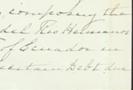 composing the
del Rio Hermanos
of Ecuador in
certain debt due